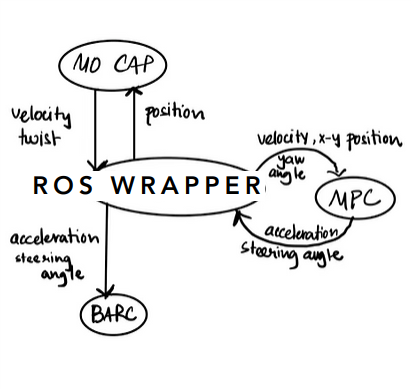 MO CAP
velocity
twist
position
velocity, x-y position
yaw
angle
ROS WRAPPER
MPC
acceleration
steering angle
acceleration
steering
angle
BARC